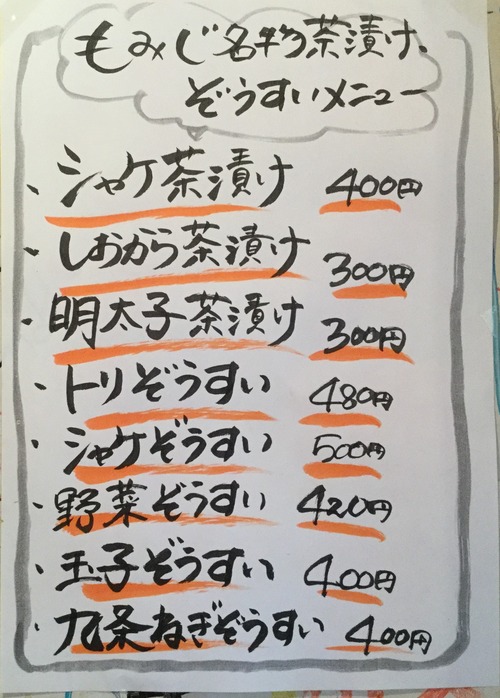 もみじ名物茶漬け、
ぞうすいメニュー
、シャケ茶漬け 400円
、しおから茶漬け 300円
、明太子茶漬け 300円
、トリぞうすい 480円
、シャケぞうすい 500円
、野菜ぞうすい 420円
、玉子ぞうすい 400円
、九条ねぎぞうすい 400円